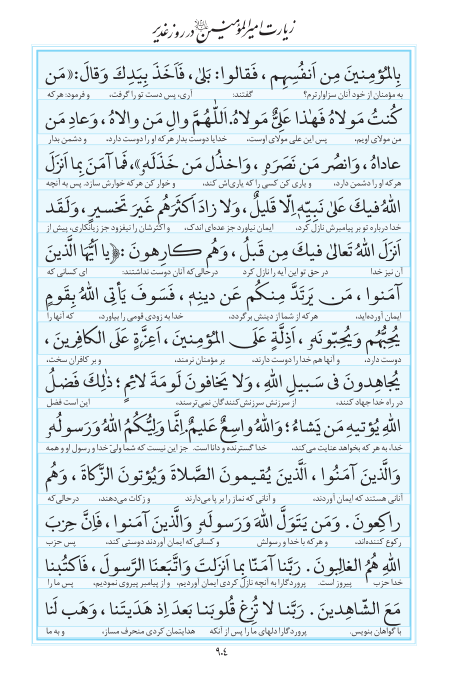 زیارت امیرالمؤمنین در روز غدیر
بِالْمُؤْمِنينَ مِن اَنفُسِهِم ، فَقالوا: بَلیٰ، فَاَخَذَ بِیَدِكَ وَقالَ: «مَن
به مؤمنان از خود آنان سزاوارترم؟ گفتند: آری، پس دست تو را گرفت، و فرمود: هرکه
كُنتُ مَولاهُ فَهٰذا عَلِيٌّ مَولاهُ. اَللّٰهُمَّ والِ مَن والاهُ ، وَعادِ مَن
من مولای اویم، پس این علی مولای اوست، خدایا دوست بدار هرکه او را دوست دارد، و دشمن بدار
عاداهُ ، وَانصُر مَن نَصَرَهِ ، وَاخذُل مَن خَذَلَه»، فَما آمَنَ بِما اَنزَلَ
هرکه او را دشمن دارد، و یاری کن کسی را که یاری‌اش کند، و خوار کن هرکه خوارش سازد. پس به آنچه
اللهُ فيكَ عَلیٰ نَبِيِّهِ اِلّا قَليلٌ ، وَلا زادَ اَكثَرَهُم غَيرَ تَخسيرٍ ، وَلَقَد
خدا درباره تو بر پیامبرش نازل کرد، ایمان نیاورد جز عده‌ای اندک، و اکثرشان را نیفزود جز زیانکاری، پیش از
اَنزَلَ اللهُ تَعالیٰ فيكَ مِن قَبلُ ، وَهُم كارِهونَ : ﴿يا اَيُّهَا الَّذينَ
آن نیز خدا در حق تو این آیه را نازل کرد درحالی‌که آنان دوست نداشتند: ای کسانی که
آمَنوا ، مَن يَرتَدَّ مِنكُم عَن دينِهِ ، فَسَوفَ يَأتِي اللهُ بِقَومٍ
ایمان آورده‌اید، هرکه از شما از دینش برگردد، خدا به زودی قومی را بیاورد، که آنها را
يُحِبُّهُم وَيُحِبّونَهِ ، اَذِلَّةٍ عَلَى المُؤمِنينَ ، اَعِزَّةٍ عَلَى الكافِرينَ ،
دوست دارد، و آنها هم خدا را دوست دارند، بر مؤمنان نرمند، و بر کافران سخت،
يُجاهِدونَ في سَبيلِ اللهِ ، وَلا يَخافونَ لَومَةَ لائِمٍ ؛ ذٰلِكَ فَضلُ
در راه خدا جهاد کنند، از سرزنش سرزنش‌کنندگان نمی‌ترسند، این است فضل
اللهِ يُؤتيهِ مَن يَشاءُ ؛ وَاللهُ واسِعٌ عَليمٌ. اِنَّما وَلِيُّكُمُ اللهُ وَرَسولُه
خدا، به هرکه بخواهد عنایت می‌کند، خدا گسترنده و دانا است. جز این نیست که شما ولیّ خدا و رسول او و همه
وَالَّذينَ آمَنُوا ، الَّذينَ يُقيمونَ الصَّلاةَ وَيُؤتونَ الزَّكاةَ ، وَهُم
آنانی هستند که ایمان آوردند، و آنانی که نماز را بر پا می‌دارند و زکات می‌دهند، درحالی‌که
راكِعونَ . وَمَن يَتَوَلَّ اللهَ وَرَسولَه وَالَّذينَ آمَنوا ، فَاِنَّ حِزبَ
رکوع کننده‌اند، و هرکه با خدا و رسولش و کسانی‌که ایمان آوردند دوستی کند، پس حزب
اللهِ هُمُ الغالِبونَ . رَبَّنا آمَنّا بِما اَنزَلتَ وَاتَّبَعنَا الرَّسولَ ، فَاكتُبنا
خدا حزب پیروز است. پروردگارا به آنچه نازل کردی ایمان آوردیم، و از پیامبر پیروی نمودیم، پس ما را
مَعَ الشّاهِدينَ . رَبَّنا لا تُزِغ قُلوبَنا بَعدَ اِذ هَدَيتَنا ، وَهَب لَنا
با گواهان بنویس. پروردگارا دلهای ما را پس از آنکه هدایتمان کردی منحرف مساز، و به ما
۹۰۴